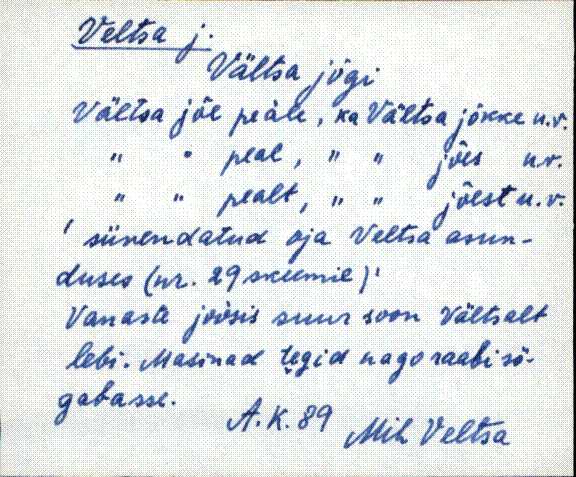 Veltsa j.
Vältsa jõgi
Vältsa jõe peäle, ka Vältsa jõkke u.v.
" " peal, " " jões u.v.
" " pealt, " " jõest u.v.
' süvendatud oja Veltsa asun-
duses (nr. 29 skeemil)'
Vanaste joosis suur soon Vältsalt
lebi. Masinad tegid nago raabi sü-
gabasse.
A.K. 89
Mih Veltsa